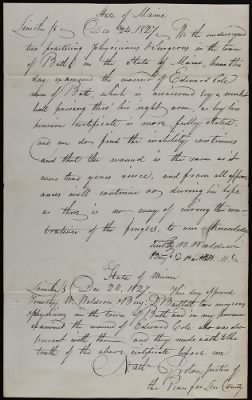 State of Maine
Lincoln ss Dec 24, 1827, We the undersigned
two practising Physicians & Surgeons in the town
of Bath in the State of Maine, have this
day examined the wound of Edward Cole
of Bath, which is occasioned by a musket
ball passing thro' his right arm, as by his
pension certificate is more fully stated,
and we do find the inability continues
and that the wound is the same as it
were two years since, and from all appear
ances will continue so during his life
as there is no way of curing the con
traction of the fingers, to our knowledge
Timothy W. Waldron
State of Maine
Lincoln ss Dec 24, 1827. This day appeared
Timothy W. Waldron & Benj. D. Bartlett two surgeons &
physicians in the town of Bath and in my presence
examined the wound of Edward Cole who was also
present with them and they made oath to the
truth of the above certificate before me
Justice of
the Peace for Lin. County